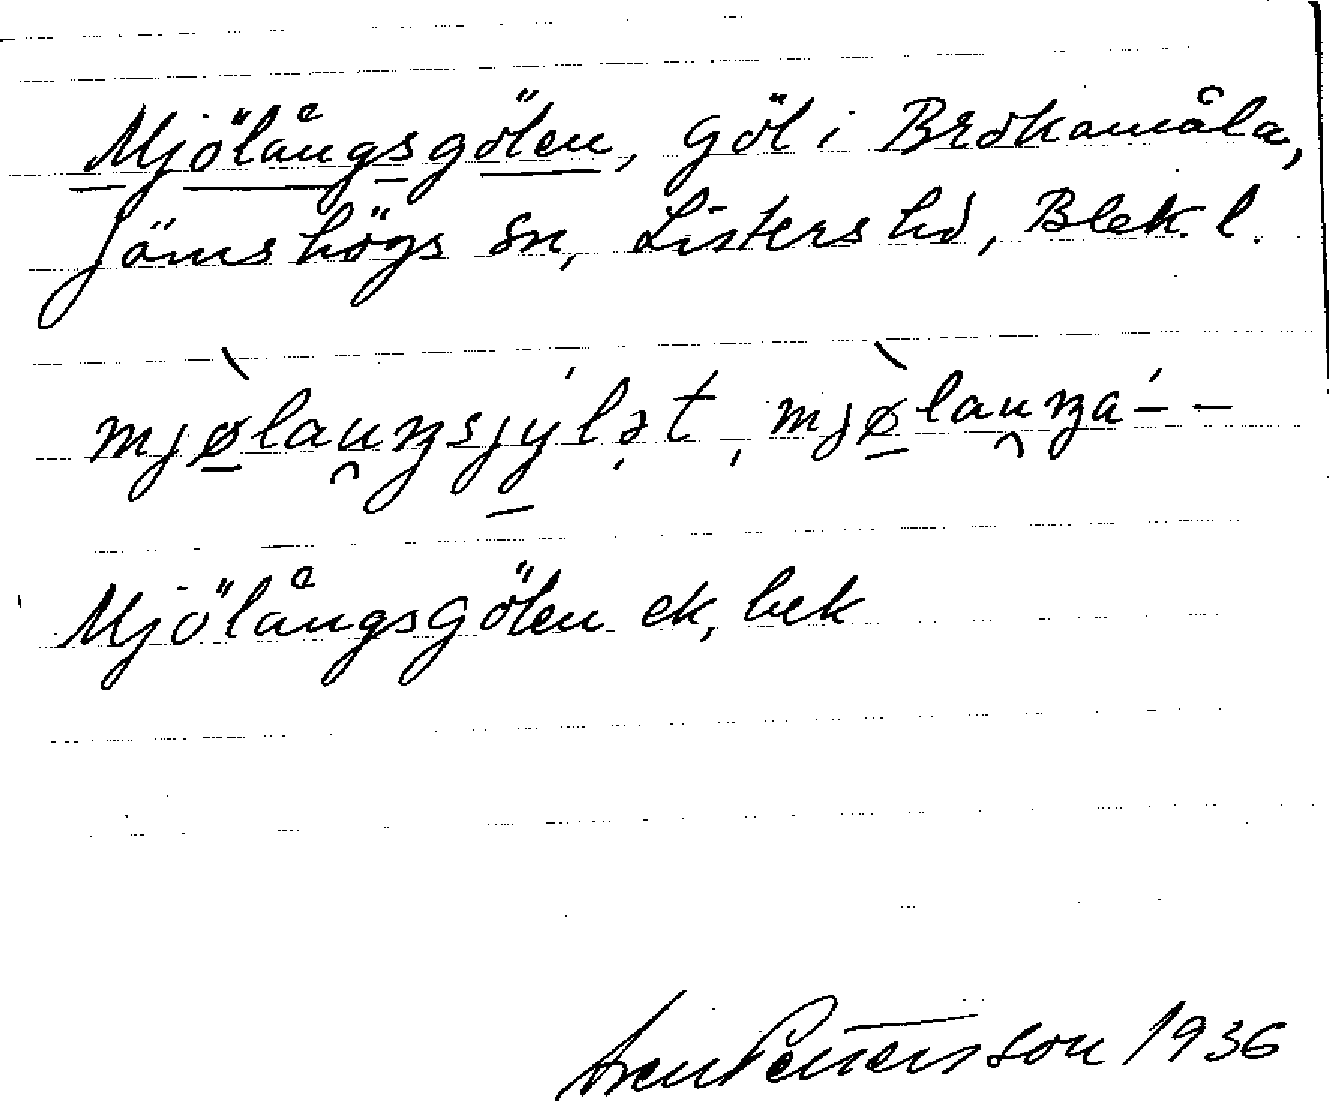 Mjölångsgölen, göl i Brokamåla,
Jämshögs sn, Listers hd, Blek. l.
mjø̱lau̯ŋsjy̱lət, mjø̱lau̯ŋa - -
Mjölångsgölen ek, bek
Pettersson 1936